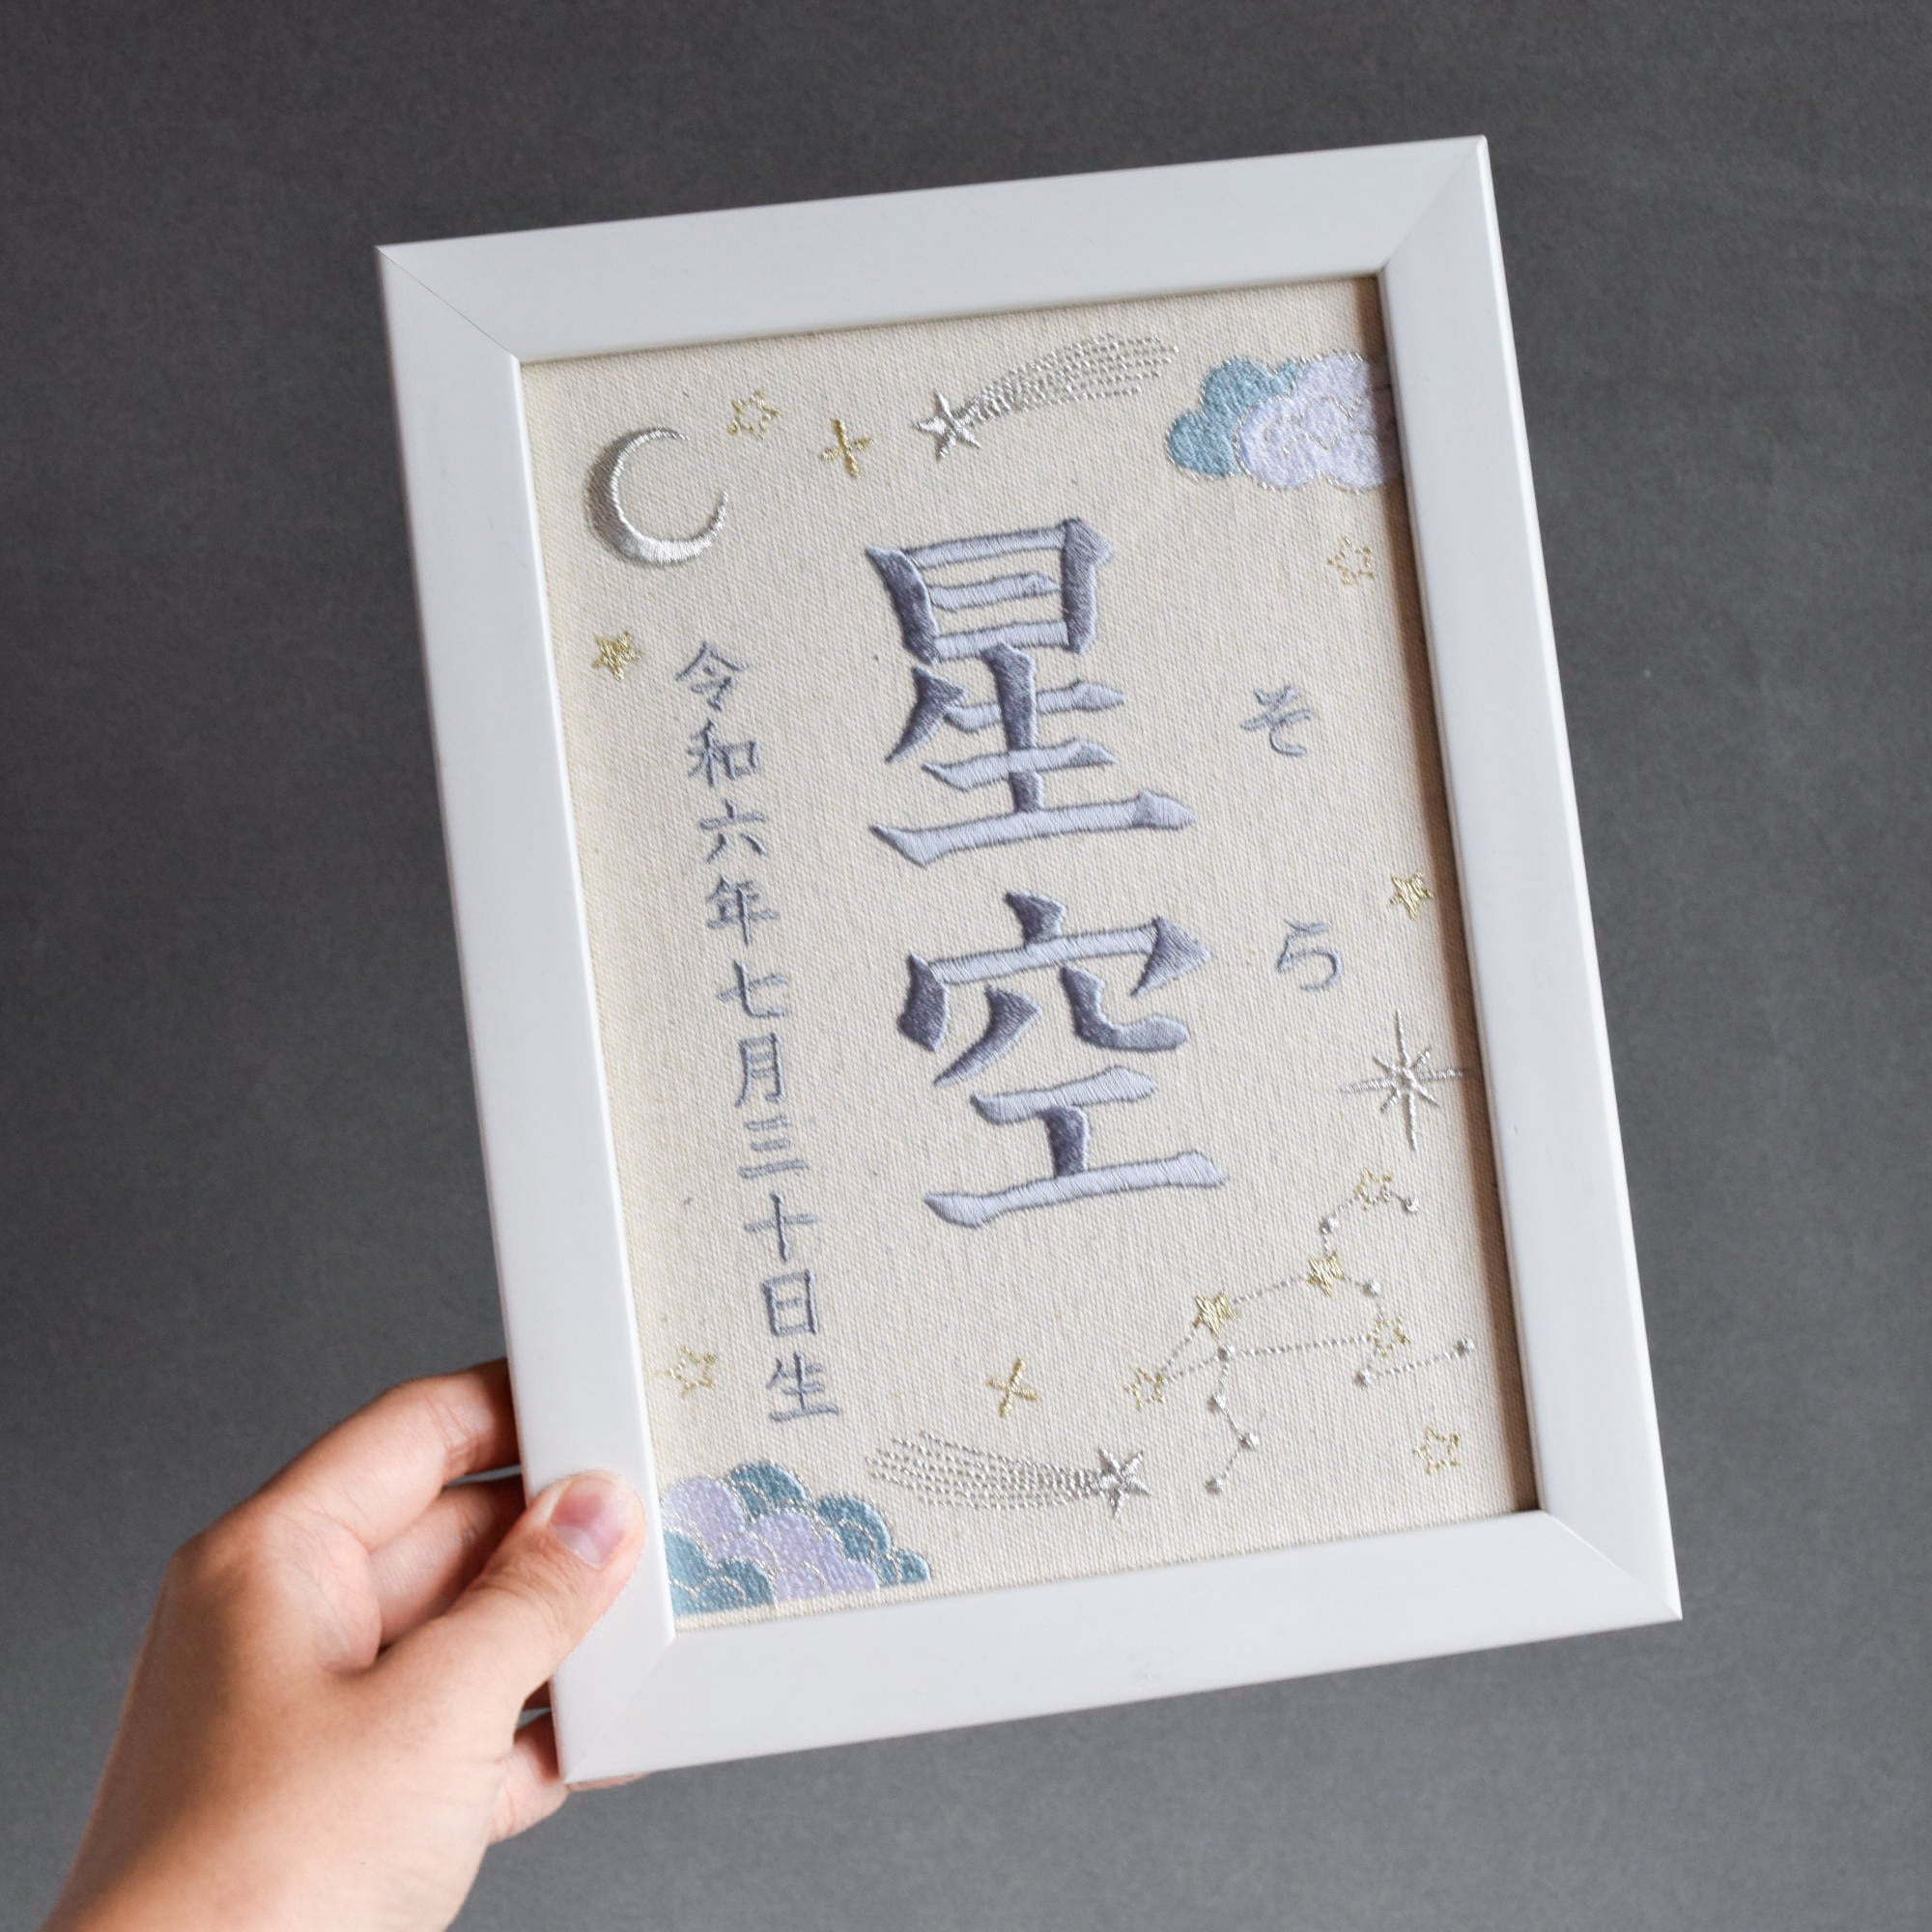 そら
星空
令和六年七月三十日生